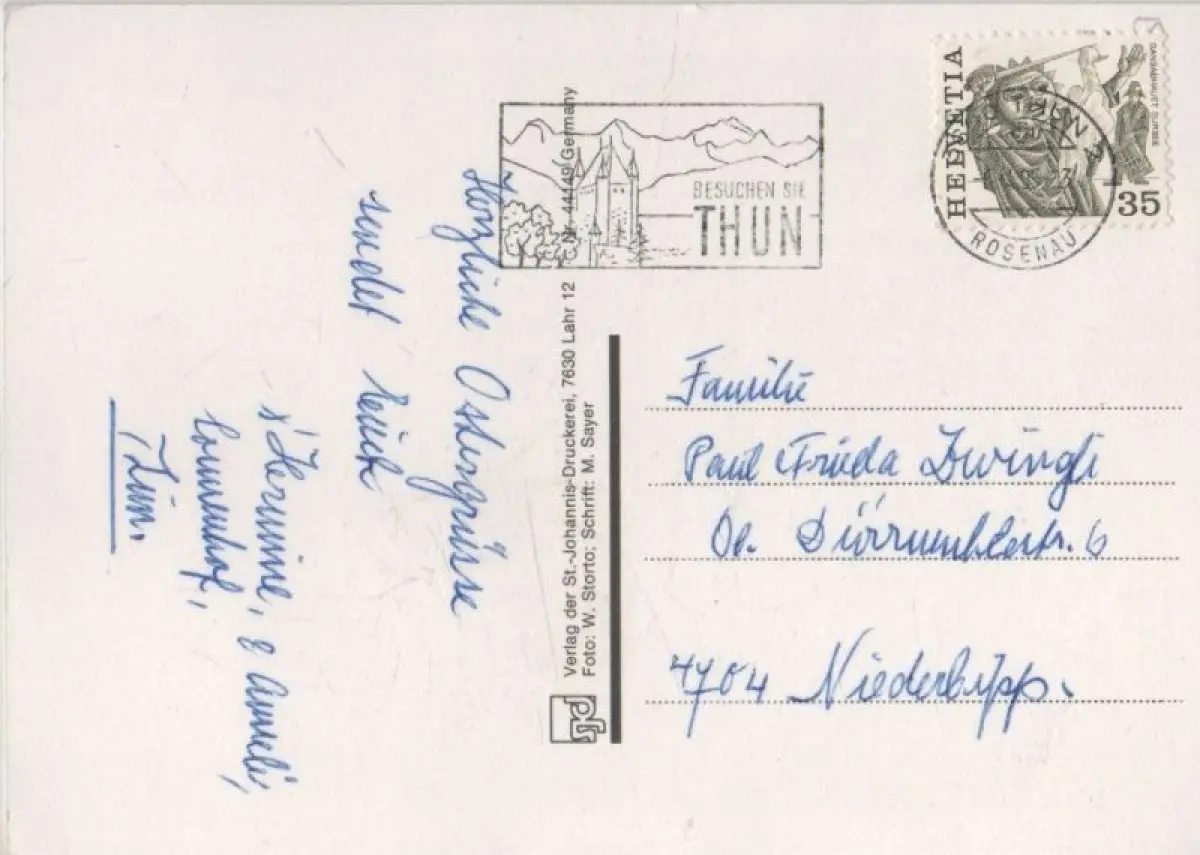 Herzliche Ostergrüsse
sendet Euch
s'Hermine, & Anneli,
Sonnenhof,
Thun.
C Nr. 44449 Germany
Verlag der St.-Johannis-Druckerei, 7630 Lahr 12
Foto: W. Storto; Schrift: M. Sayer
sjd
BESUCHEN SIE
THUN
HELVETIA
GANSABHAUET SURSEE
35
ROSENAU
Familie
Paul Frieda Zwingli
Ob. Dürrmühlestr. 6
4704 Niederbipp.